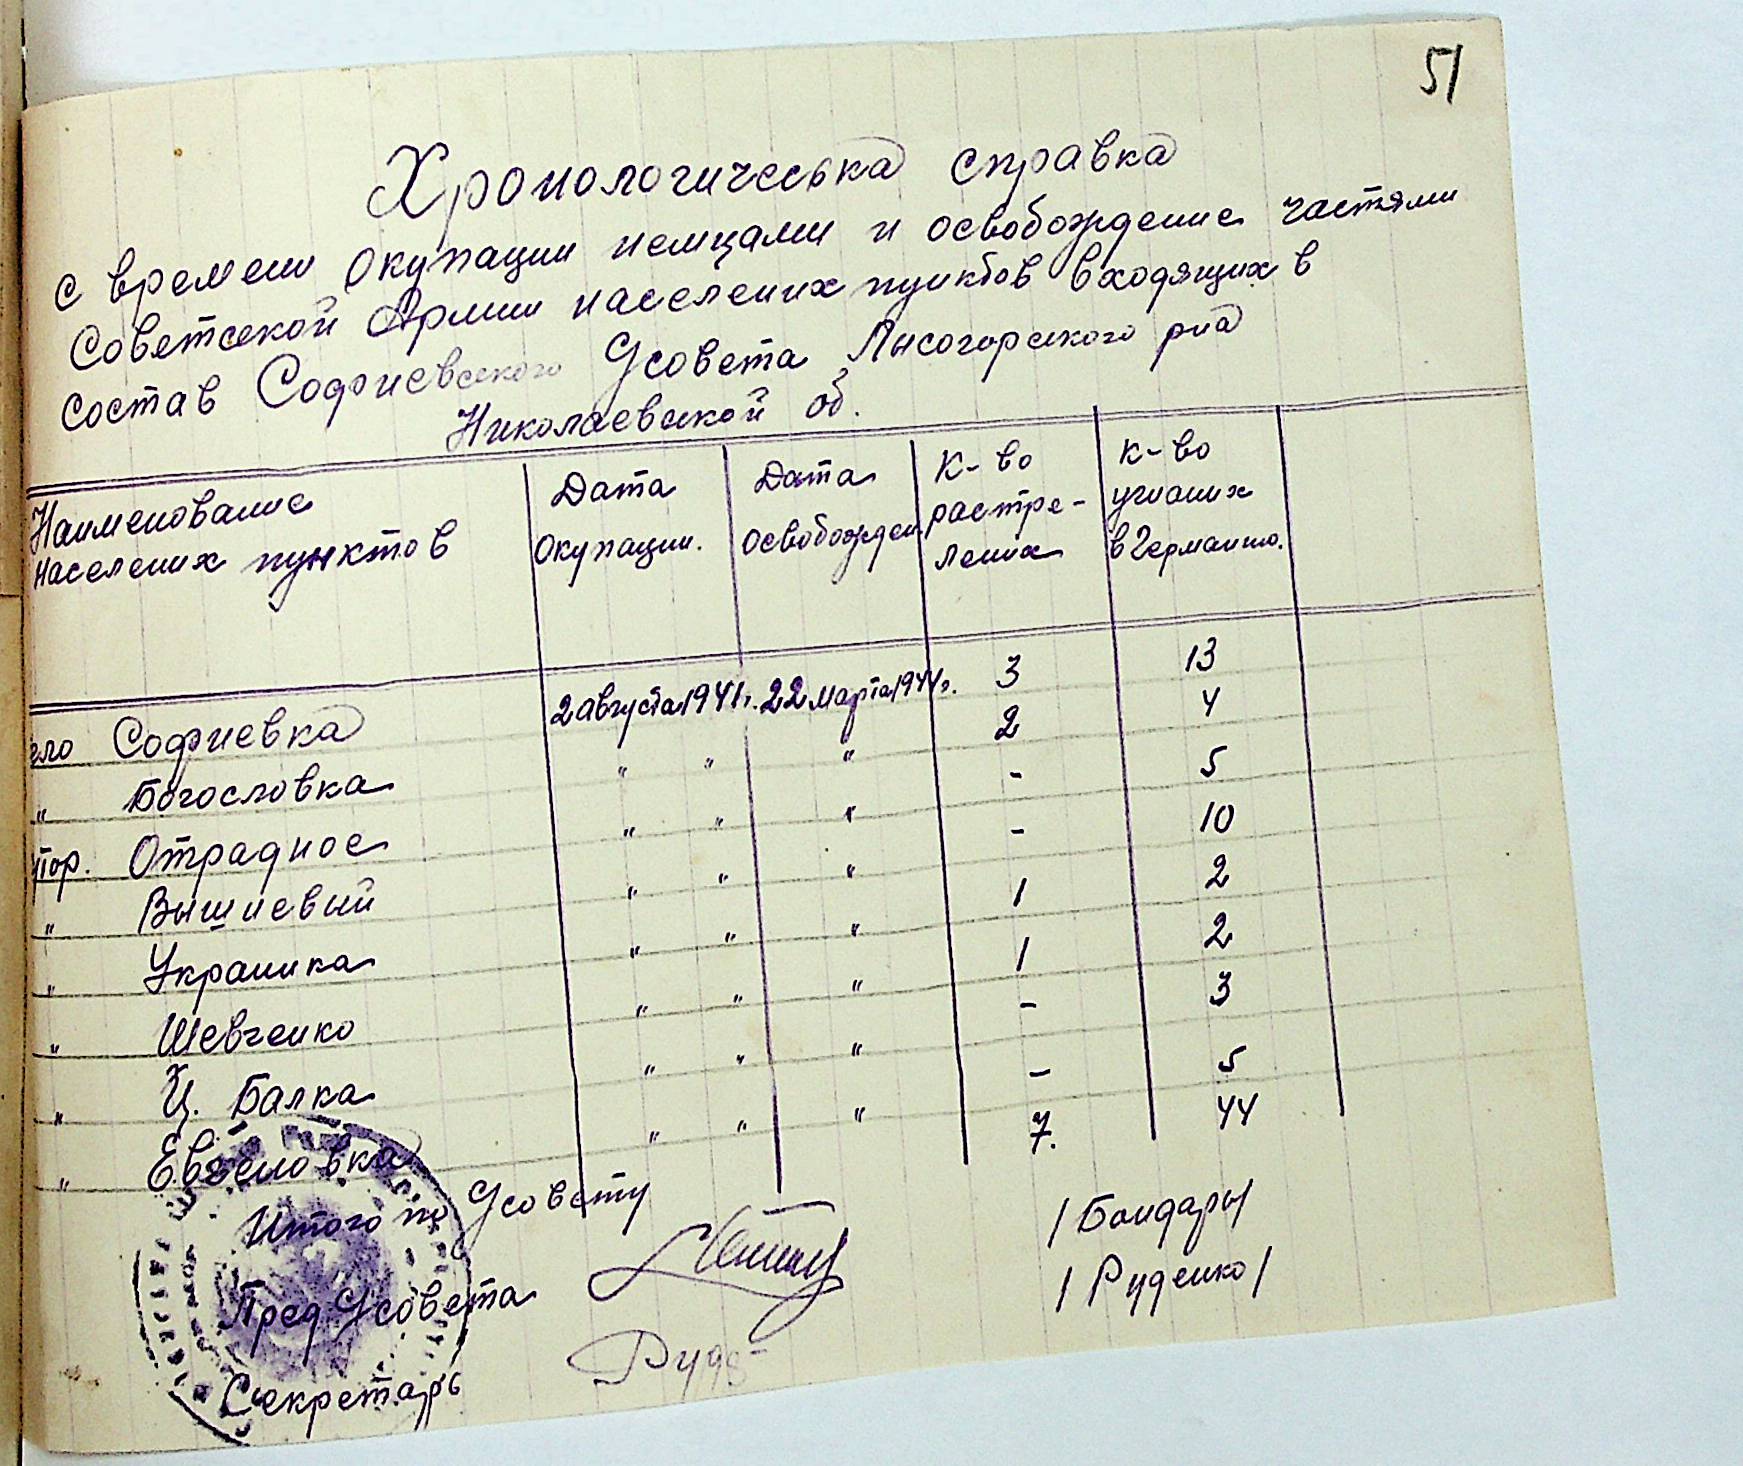 51
Хронологичеська справка
с времени окупации немцами и освобождение частями
Советской Армии населених пунктов входящих в
состав Софиевского У/совета Лысогорского р-на
Николаевской об.
Наименование населених пунктов | Дата окупации. | Дата освобожден. | К-во растре-лених | к-во угнаних в Германию.
ело Софиевка 2 августа 1941 г. 22 марта 1944 г. 3 13
" Богословка " " " 2 4
тор. Отрадное " " " - 5
" Вышневый " " " - 10
" Украинка " " " 1 2
" Шевченко " " " 1 2
" Ц. Балка " " " - 3
" Евгеновка " " " - 5
Итого по У/совету 7. 44
Пред У/совета /Бондарь/
Секретарь Руде- /Руденко/